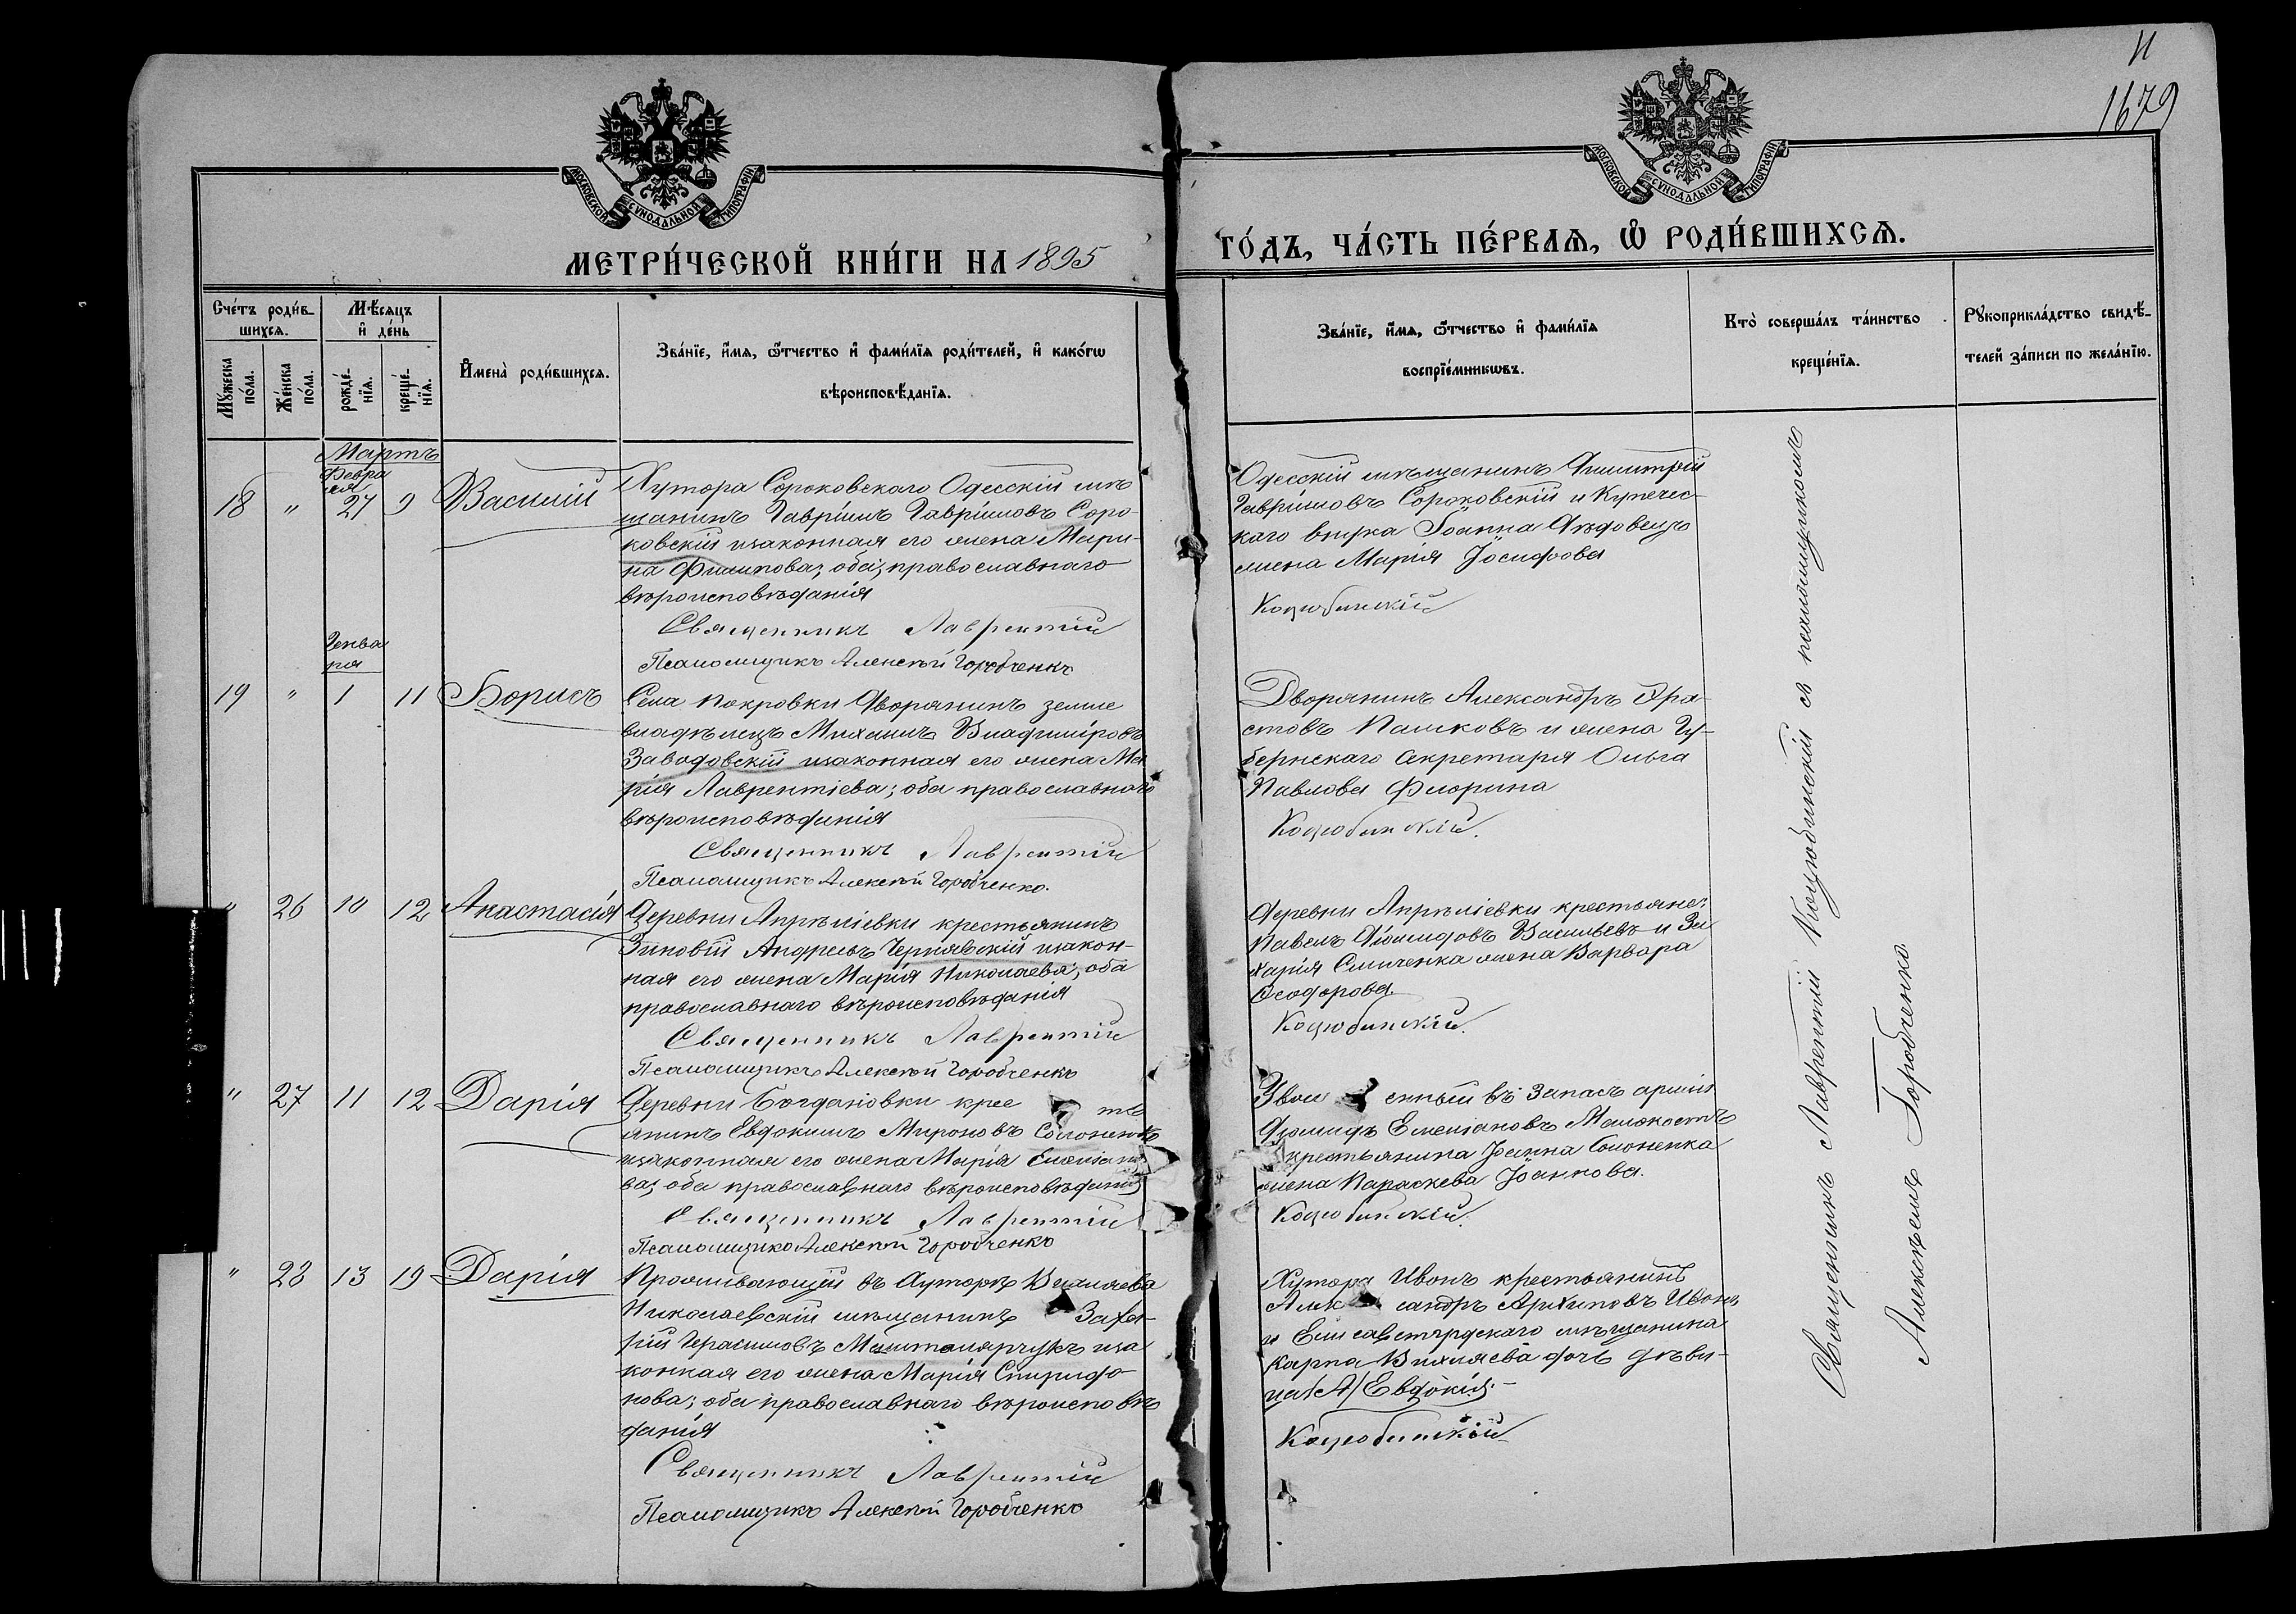 И
1679
МОСКОВСКОЙ СУНОДАЛЬНОЙ ТИПОГРАФІИ
МОСКОВСКОЙ СУНОДАЛЬНОЙ ТИПОГРАФІИ
МЕТРИ́ЧЕСКОЙ КНИ́ГИ НА 1895
ГО́ДЪ, ЧА́СТЬ ПЕ́РВАѦ, Ѿ РОДИ́ВШИХСѦ.
Сче́тъ роди́в-
шихсѧ.
Мꙋ́жеска
по́ла.
Же́нска
по́ла.
Мѣ́сѧцъ
и҆ де́нь
рожде́-
нїѧ.
креще́-
нїѧ.
И҆мена̀ роди́вшихсѧ.
Зва́нїе, и҆́мѧ, ѻ҆́тчество и҆ фами́лїѧ роди́телей, и҆ како́гѡ
вѣроисповѣ́данїѧ.
Зва́нїе, и҆́мѧ, ѻ҆́тчество и҆ фами́лїѧ
воспрїе́мникѡвъ.
Кто̀ соверша́лъ та́инство
креще́нїѧ.
Рꙋкоприкла́дство свидѣ́-
телей за́писи по жела́нїю.
Мартъ
Февра
ля
18 " 27 9 Василій
Хутора Сороковскаго Одесскій мѣ
щанинъ Гавріилъ Гавріиловъ Соро-
ковскій изаконная его жена Мари-
на Филипова; оба православнаго
вѣроисповѣданія
Священникъ Лаврентій
Псаломщикъ Алексѣй Горобченко
Одесскій мѣщанинъ Димитрій
Гавріиловъ Сороковскій и Купечес-
каго внука Іоанна
жена Марія Іосифова
Коцюбинскій
Генва
ря
19 " 1 11 Борисъ
Села Покровки Дворянинъ земле
владѣлецъ Михаилъ Владиміровъ
Заводовскій изаконная его жена Ма
рія Лаврентіева; оба православнаго
вѣроисповѣданія
Священникъ Лаврентій
Псаломщикъ Алексѣй Горобченко.
Дворянинъ Александръ Эра-
стовъ Пашковъ и жена Гу-
бернскаго Секретаря Ольга
Павлова Флорина
Коцюбинскій.
" 26 10 12 Анастасія
Деревни Апрѣліевки крестьянинъ
Зиновій Андреевъ Чернявскій изакон-
ная его жена Марія Николаева; оба
православнаго вѣроисповѣданія
Священникъ Лаврентій
Псаломщикъ Алексѣй Горобченко
Деревни Апрѣліевки крестьяне:
Павелъ Діомидовъ Васильевъ и За
харія Смиченка жена Варвара
Ѳеодорова
Коцюбинскій.
" 27 11 12 Дарія
Деревни Богдановки крес ть
янинъ Евдокимъ Мироновъ Солоненко
изаконная его жена Марія Емеліано
ва; оба православнаго вѣроисповѣданія
Священникъ Лаврентій
Псаломщикъ Алексѣй Горобченко
енный въ запасъ арміи
Діомидъ Емеліановъ
крестьянина Іоанна Солоненка
жена Параскева Іоаннова.
Коцюбинскій.
" 28 13 19 Дарія
Проживающій въ Хуторѣ Вихляева
Николаевскій мѣщанинъ Заха-
рій Герасимовъ иза
конная его жена Марія Спиридо-
нова; оба православнаго вѣроисповѣ
данія
Священникъ Лаврентій
Псаломщикъ Алексѣй Горобченко
Хутора Ивонъ крестьянинъ
Алек сандръ Архиповъ Ивонъ
и Елисаветградскаго мѣщанина
Карпа Вихляева дочь дѣви-
ца Евдокія.
Коцюбинскій
Священникъ Лаврентій Коцюбинскій съ псаломщикомъ
Алексѣемъ Горобченко